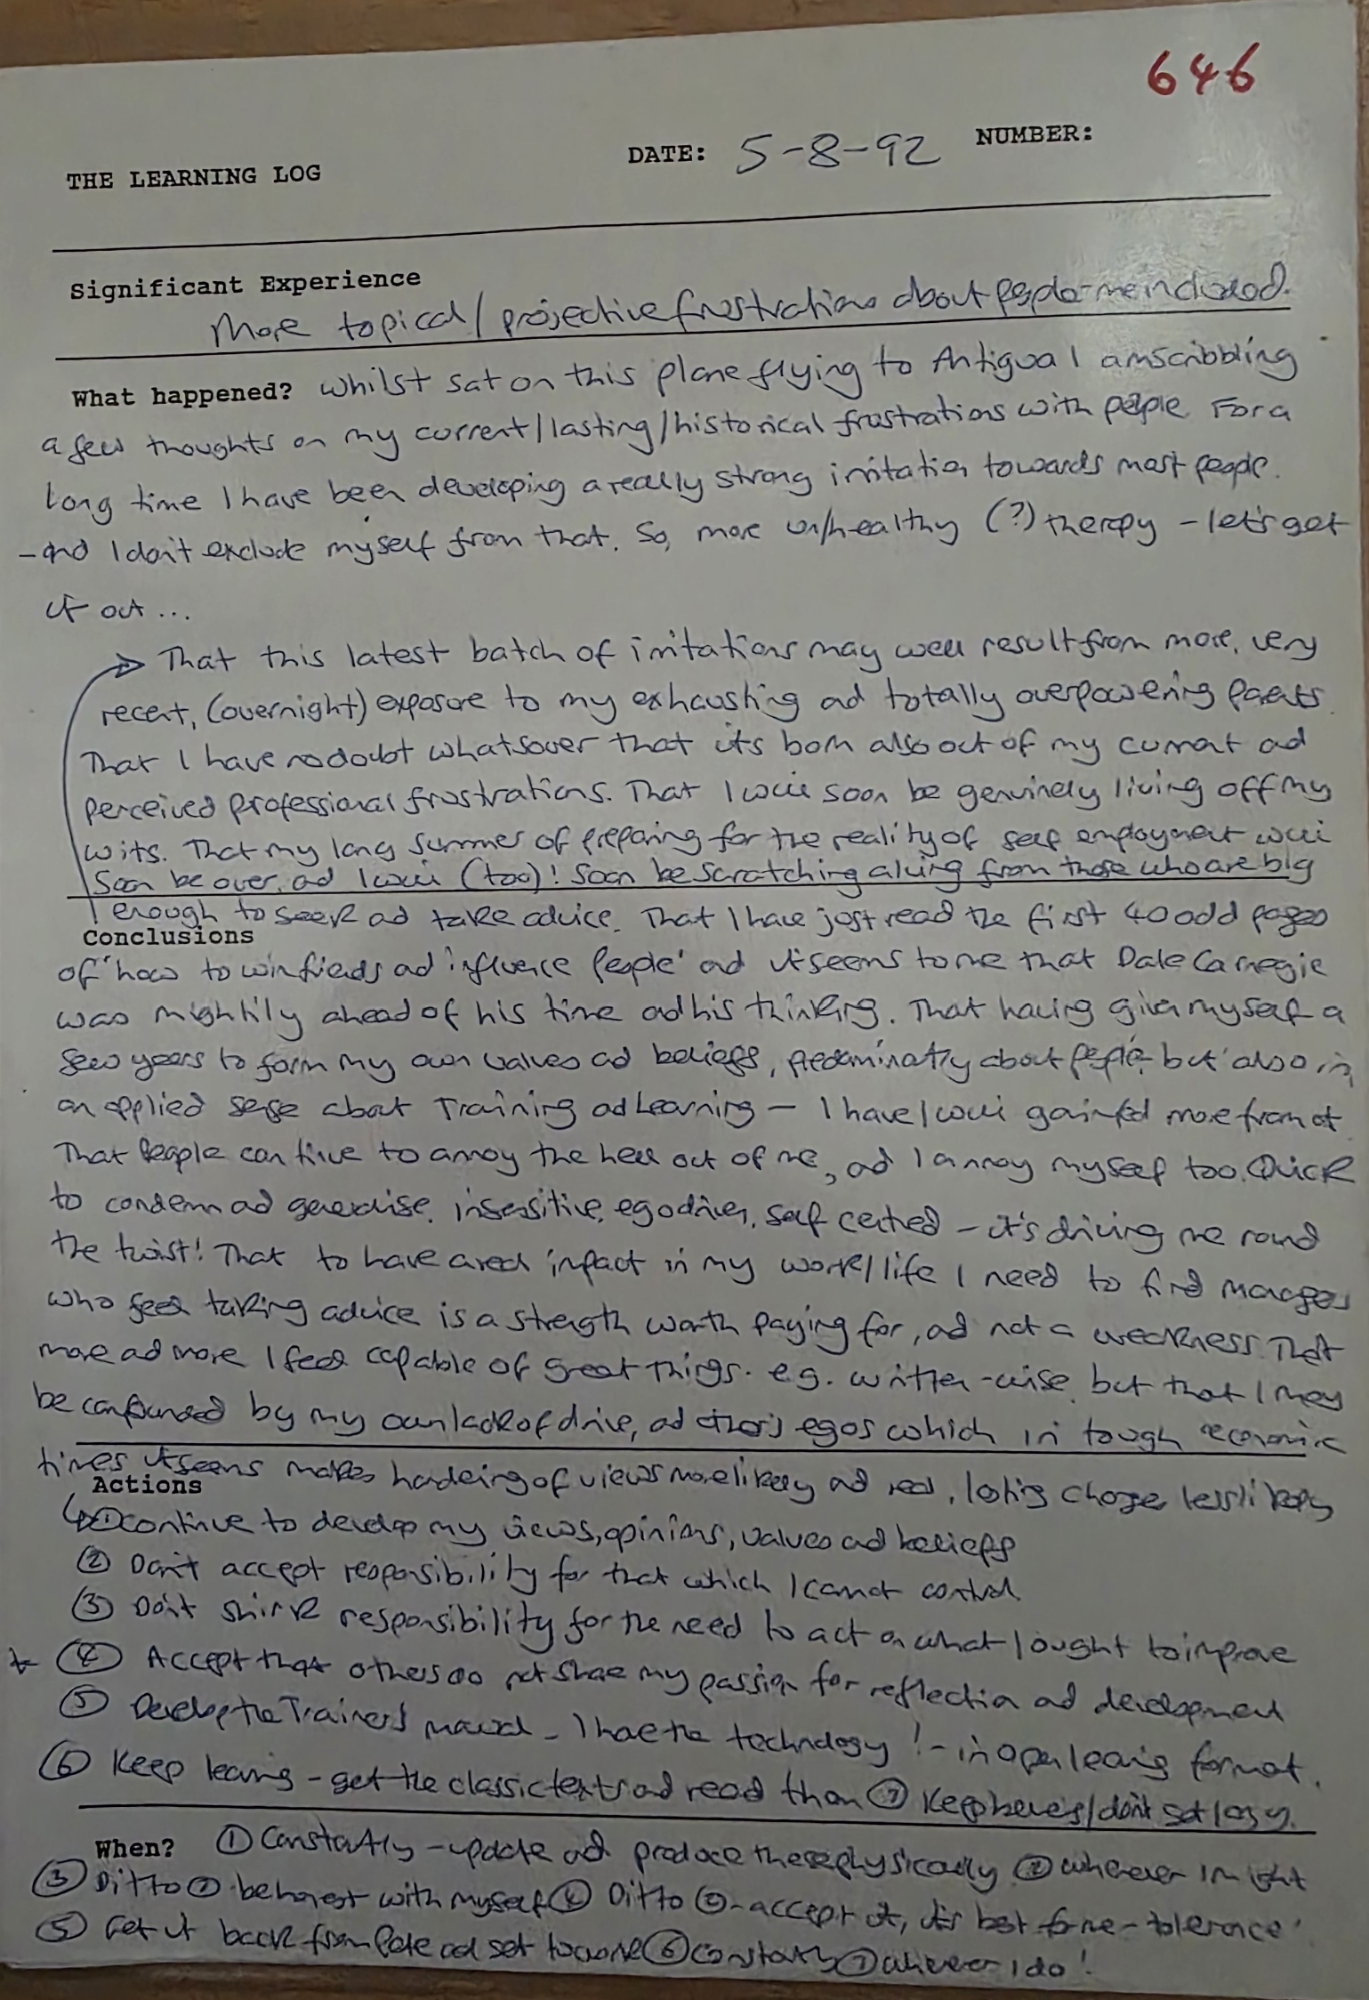 646
THE LEARNING LOG DATE: 5-8-92 NUMBER:
Significant Experience
More topical/projective frustrations about people - me included.
What happened? Whilst sat on this plane flying to Antigua I am scribbling
a few thoughts on my current/lasting/historical frustrations with people. For a
long time I have been developing a really strong irritation towards most people.
- and I don't exclude myself from that. So, more un/healthy (?) therapy - let's get
it out...
→ That this latest batch of irritations may well result from more, very
recent, (overnight) exposure to my exhausting ad totally overpowering parents.
That I have no doubt whatsover that its born also out of my current ad
perceived professional frustrations. That I will soon be genuinely living off my
wits. That my long summer of preparing for the reality of self employment will
soon be over, ad I will (too)! soon be scratching a living from those who are big
enough to seek ad take advice. That I have just read the first 40 odd pages
Conclusions
of 'how to win friends ad influence people' ad it seems to me that Dale Carnegie
was mightily ahead of his time ad his thinking. That having given myself a
few years to form my own values ad beliefs, predominatly about people but also in
an applied sense about Training ad Learning - I have/will gain/ed more from it
That people continue to annoy the hell out of me, ad I annoy myself too. Quick
to condemn ad generalise, insensitive, ego driven, self centred - it's driving me round
the twist! That to have a real impact in my work/life I need to find managers
who feel taking advice is a strength worth paying for, ad not a weakness. That
more ad more I feel capable of great things. e.g. written-wise, but that I may
be confounded by my own lack of drive, ad other's egos which in tough economic
times it seems makes hardening of views more likely ad real, lasting change less likely
Actions
① Continue to develop my views, opinions, values ad beliefs
② Don't accept responsibility for that which I cannot control.
③ Don't shirk responsibility for the need to act on what I ought to improve
* ④ Accept that others do not share my passion for reflection ad development
⑤ Develop the Trainers manual - I have the technology! - in open learning format.
⑥ Keep learning - get the classic texts ad read them ⑦ Keep being/don't get lazy.
When? ① Constantly - update ad produce these physically ② Whenever I might
③ Ditto ② - be honest with myself ④ Ditto ② - accept it, it's best for me - tolerance!
⑤ Get it back from Pete ad set to work ⑥ Constantly ⑦ Whenever I do!